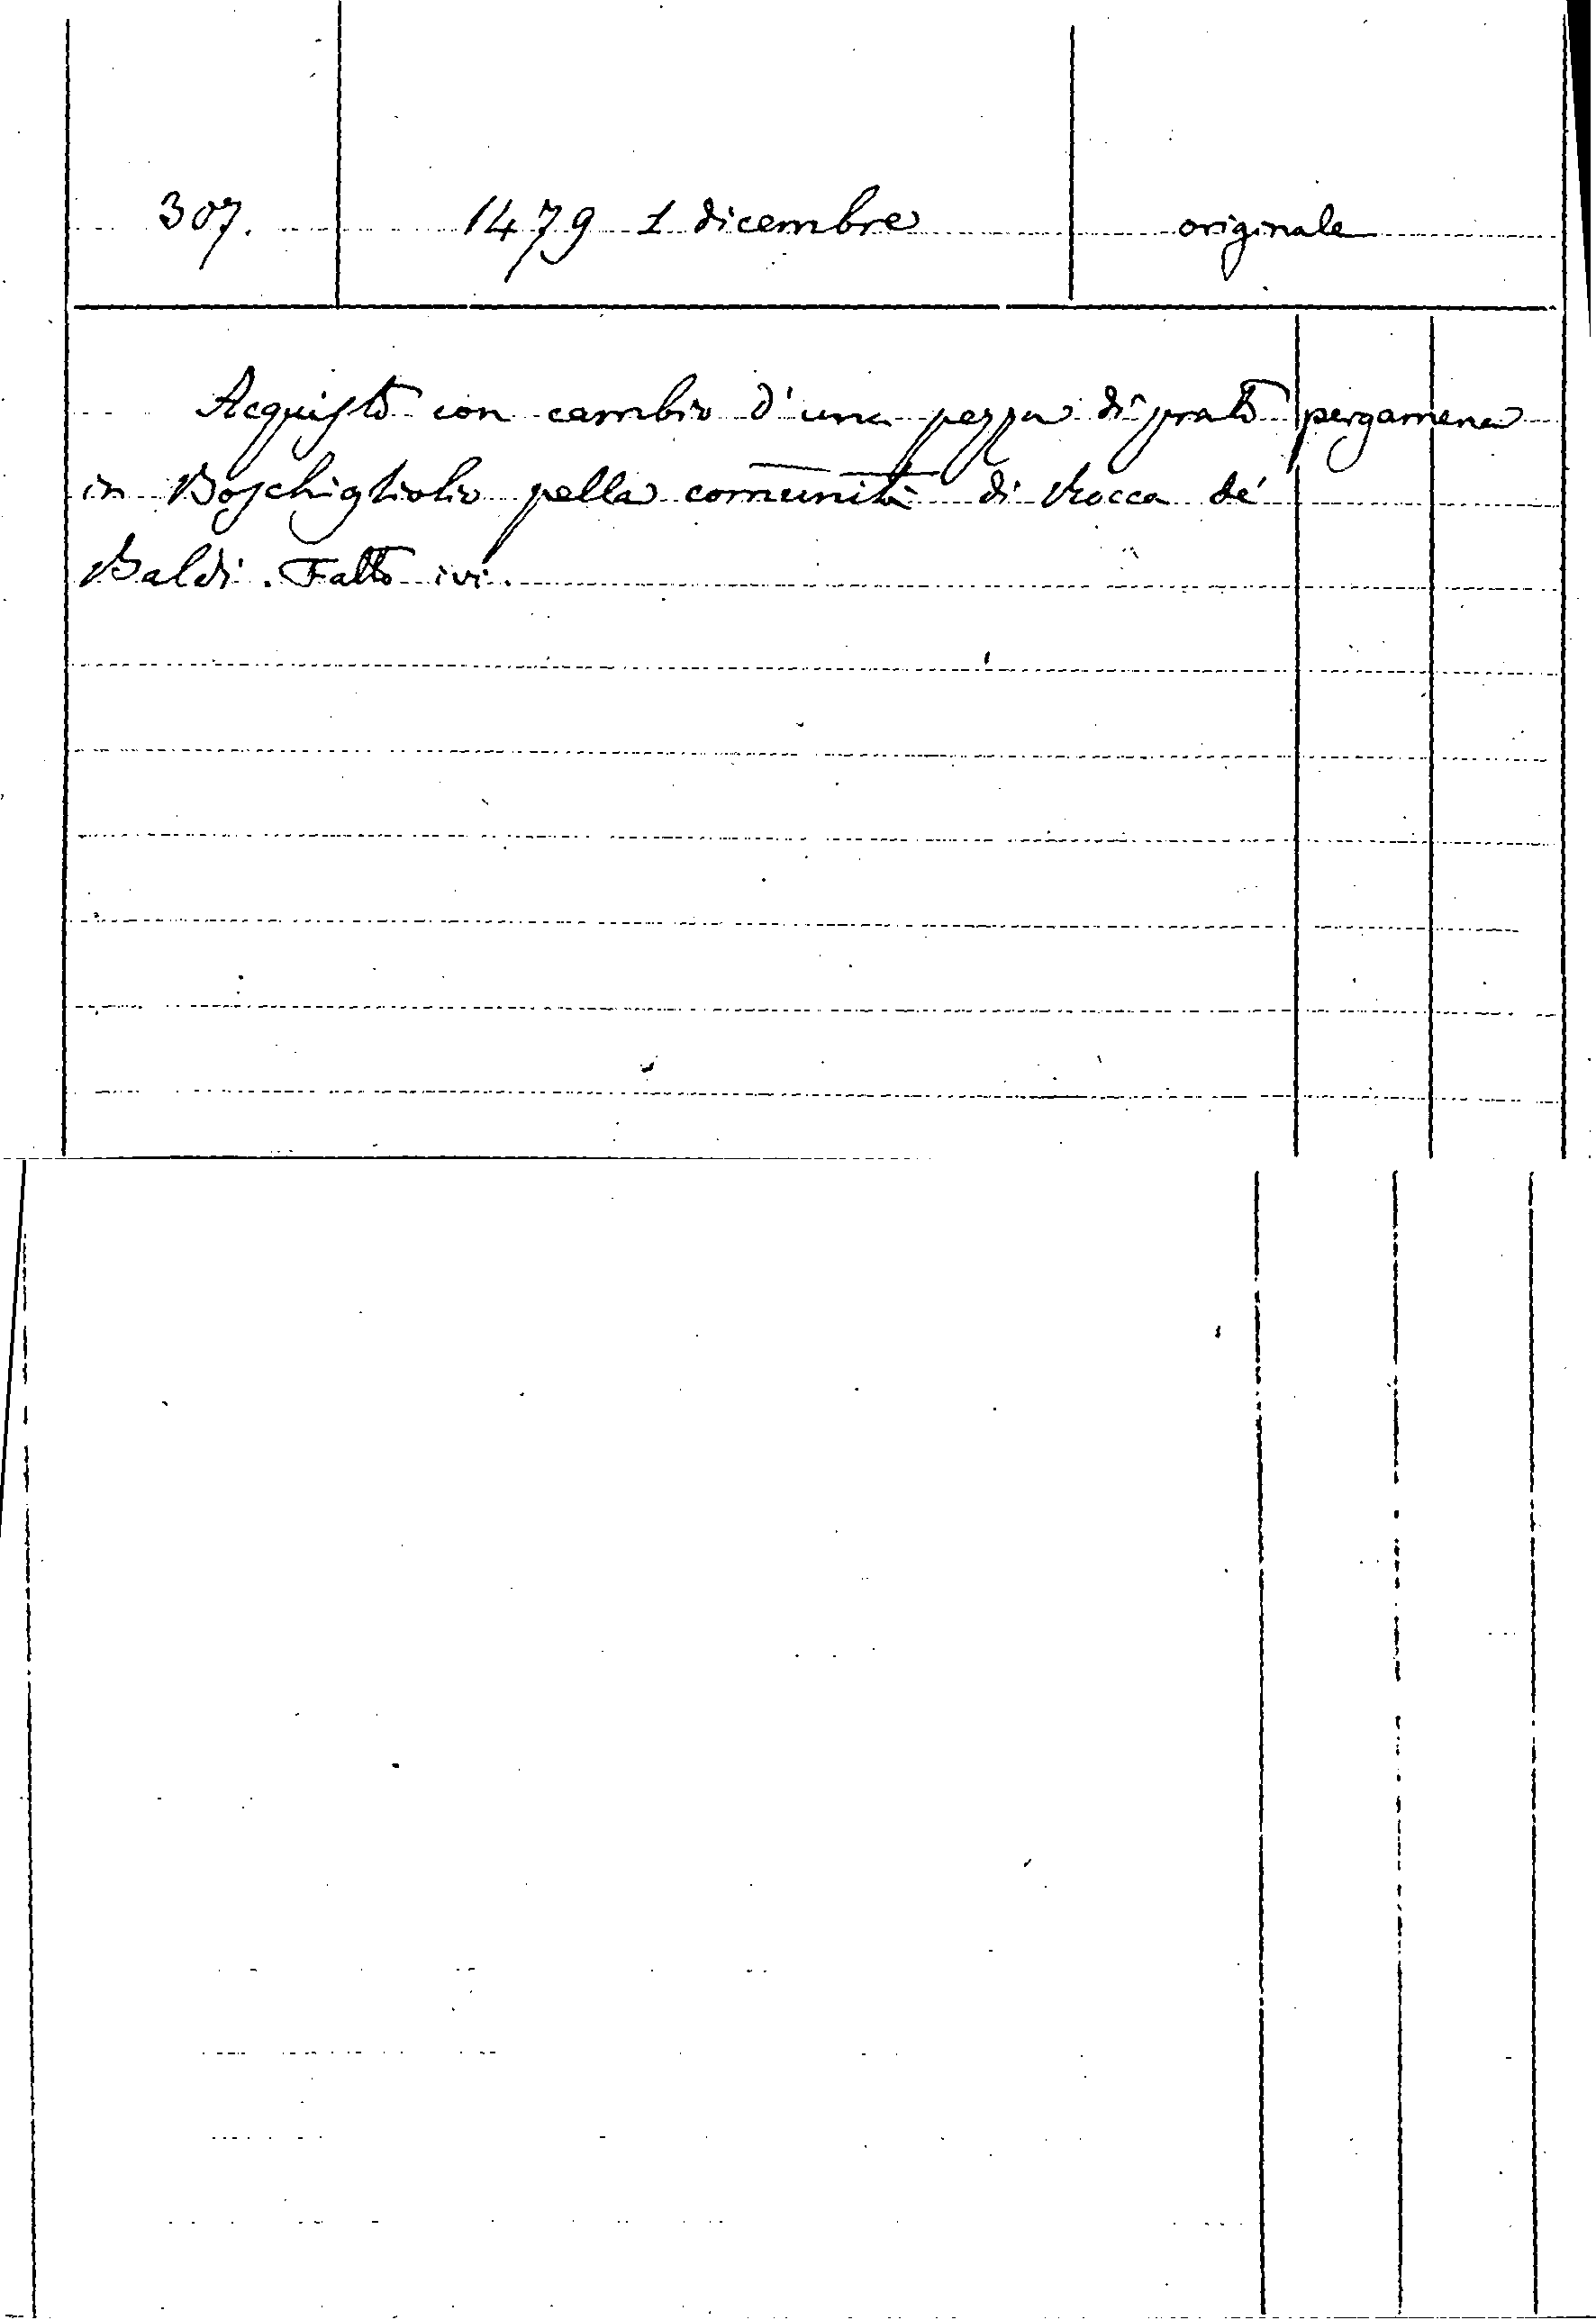 307. 1479 1 dicembre originale
Acquisto con cambio d'una pezza di prato pergamena
in Boschigliolio pella comunità di Rocca de'
Baldi. Fatto ivi.